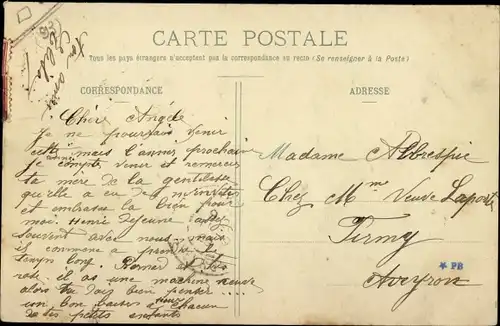 Nos amies
CARTE POSTALE
Tous les pays étrangers n'acceptent pas la correspondance au recto (Se renseigner à la Poste)
CORRESPONDANCE
ADRESSE
Chère Angèle
Je ne pourrais venir
cette mais l'année prochaine
année
je compte venir et remercier
ta mère de la gentillesse
qu'elle a eu de m'inviter
et embrasse la bien pour
moi. Henri Dejeune assez
souvent avec nous mais
il commence a prendre le
temps long.
il as une machine neuve
alors tu dois bien penser
un bon baiser a chacun
de tes petits enfants
pour
Madame Albrespic
Chez Mme Veuve Laporte
Firmy
Aveyron
* PB